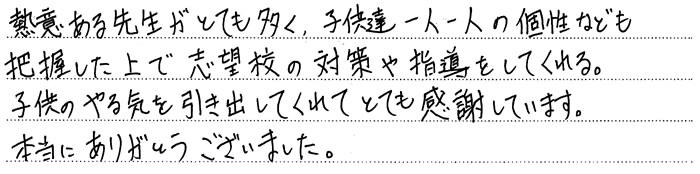 熱意ある先生がとても多く、子供達一人一人の個性なども
把握した上で志望校の対策や指導をしてくれる。
子供のやる気を引き出してくれてとても感謝しています。
本当にありがとうございました。